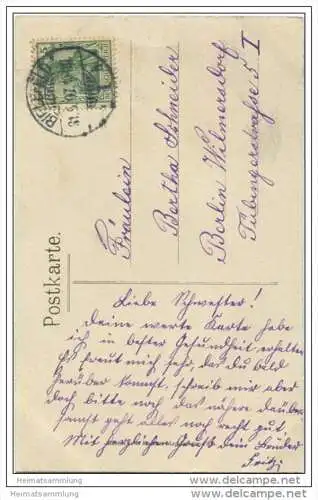 Postkarte.
Fräulein
Bertha Schneider
Berlin Wilmersdorf
Tübingerstrasse 5 I
Liebe Schwester!
Deine werte Karte habe
ich in bester Gesundheit erhalten
Es freut mich sehr, das du bald
herüber kommst, schreib mir aber
doch bitte noch das nähere darüber
sonst geht alles noch recht gut.
Mit herzlichem Gruß dein Bruder
Fritz
Heimatsammlung
Heimatsammlung